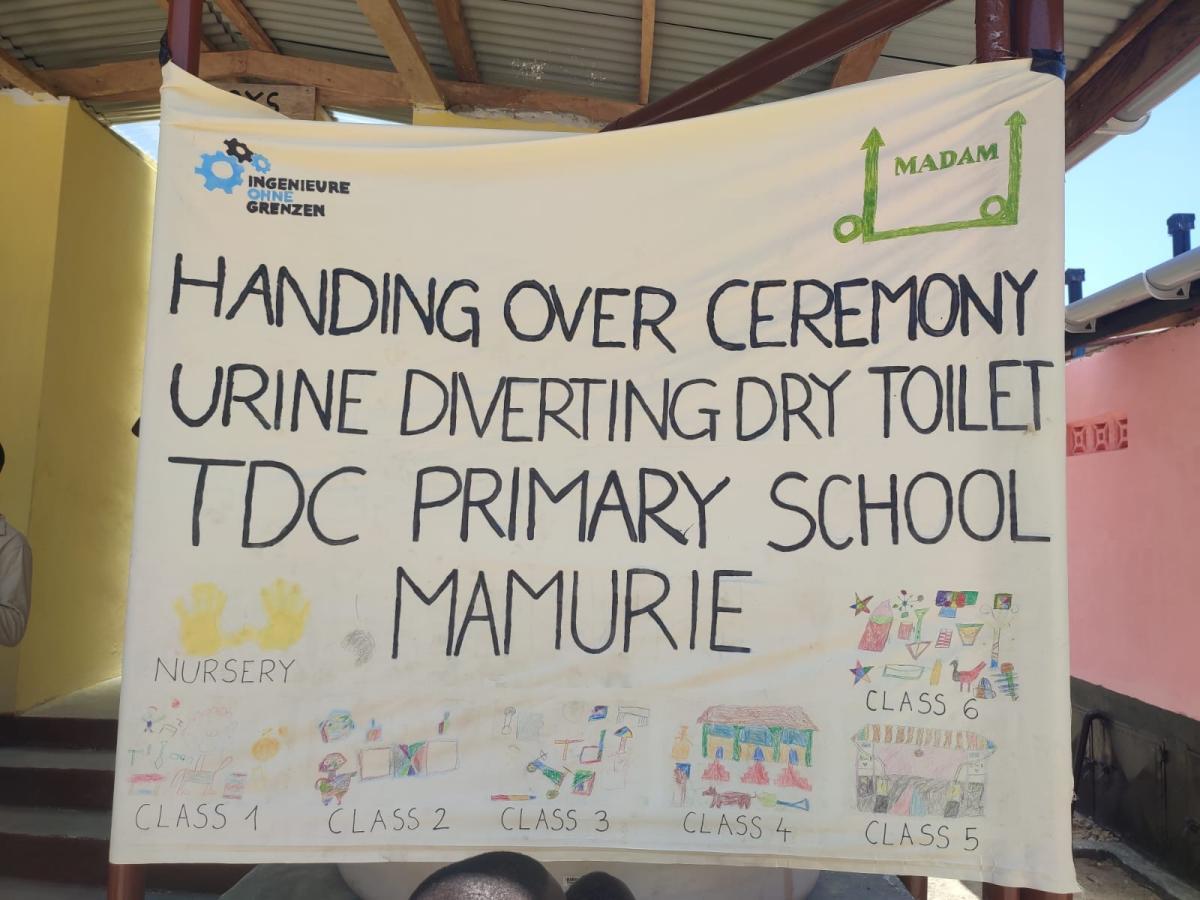 INGENIEURE
OHNE
GRENZEN
MADAM
HANDING OVER CEREMONY
URINE DIVERTING DRY TOILET
TDC PRIMARY SCHOOL
MAMURIE
NURSERY
CLASS 6
CLASS 1
CLASS 2
CLASS 3
CLASS 4
CLASS 5